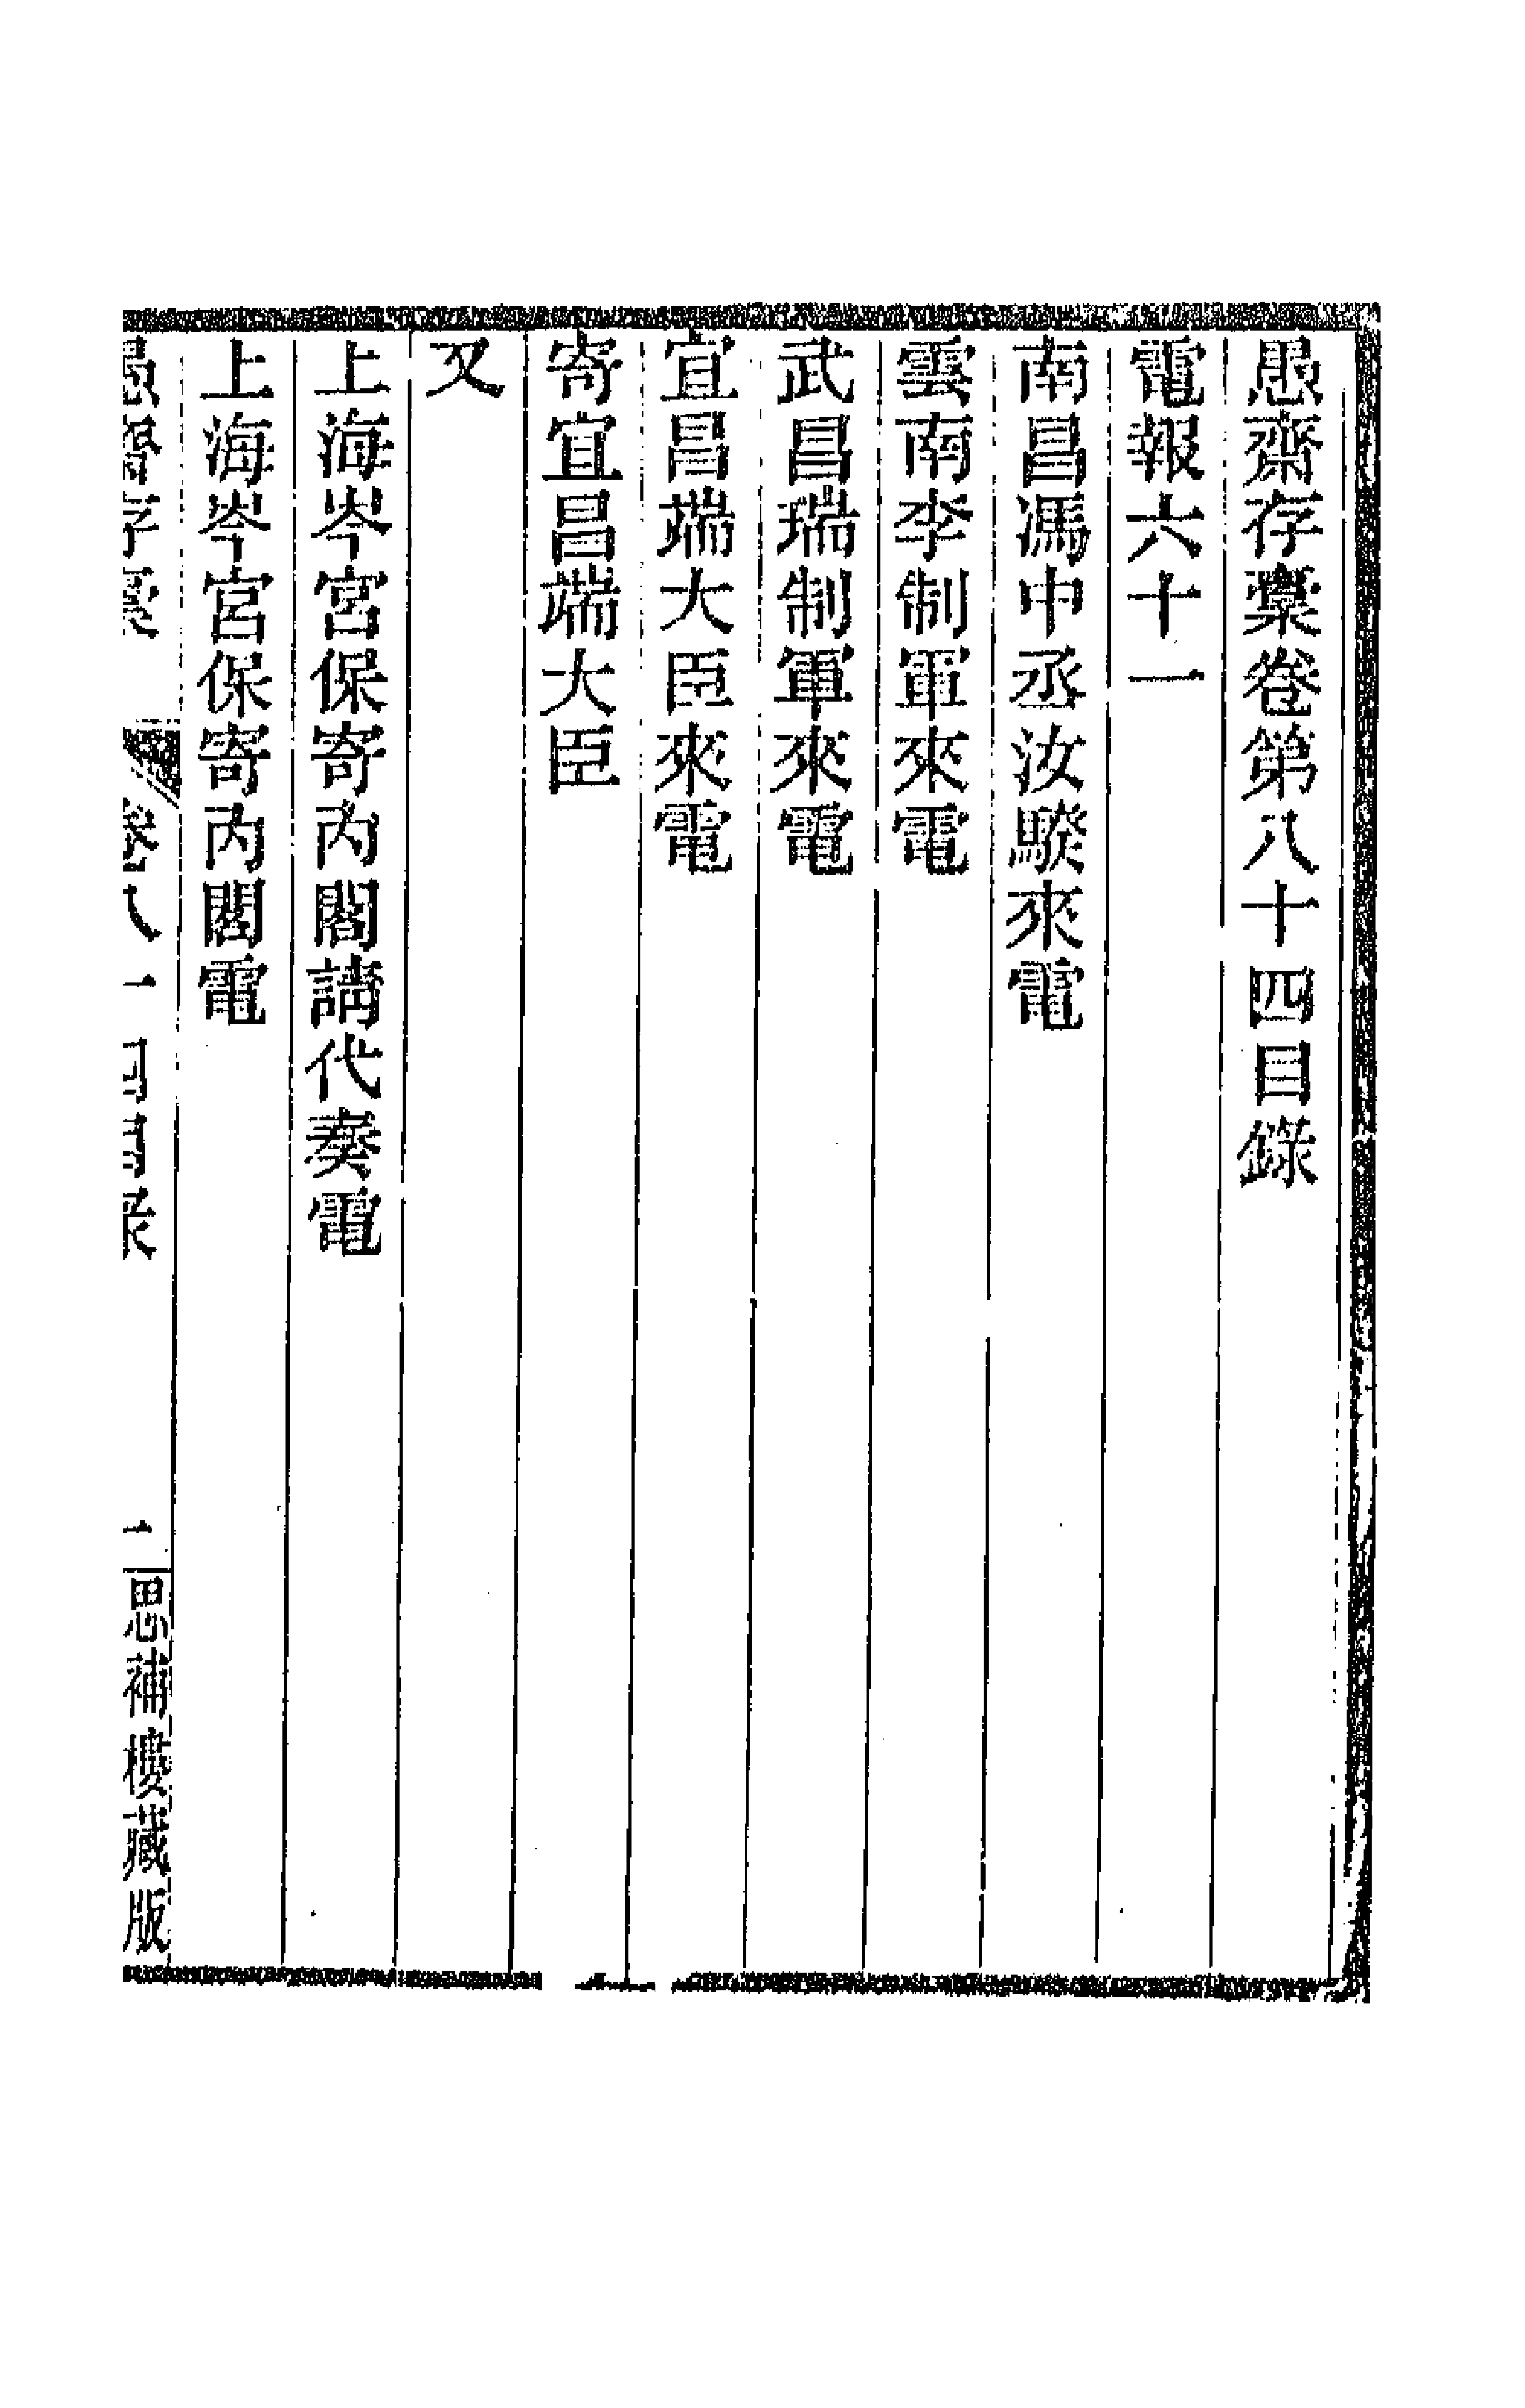 愚齋存稾卷第八十四目錄
電報六十一
南昌馮中丞汝騤來電
雲南李制軍來電
武昌瑞制軍來電
宜昌端大臣來電
寄宜昌端大臣
又
上海岑宮保寄內閣請代奏電
上海岑宮保寄內閣電
思補樓藏版